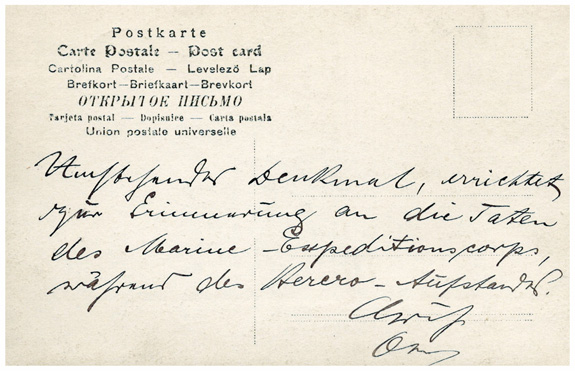 Postkarte
Carte Postale — Post card
Cartolina Postale — Levelező Lap
Brefkort—Briefkaart—Brevkort
ОТКРЫТОЕ ПИСЬМО
Tarjeta postal — Dopisnice — Carta postala
Union postale universelle
Umstehendes Denkmal, errichtet
zur Erinnerung an die Taten
des Marine-Expeditionscorps,
während des Herero-Aufstandes.